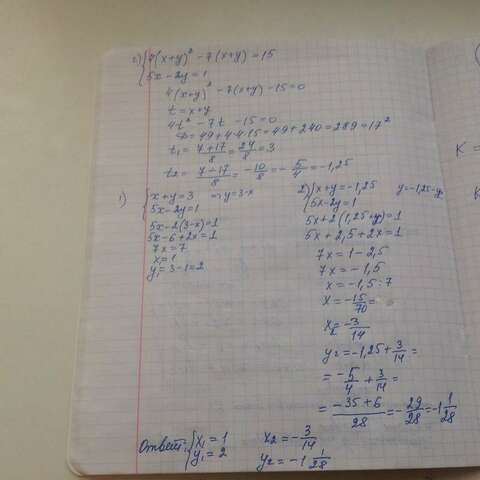 2) {4(x+y)² - 7(x+y) = 15
{5x - 2y = 1
4(x+y)² - 7(x+y) - 15 = 0
t = x+y
4t² - 7t - 15 = 0
D = 49 + 4·4·15 = 49 + 240 = 289 = 17²
t₁ = 7+17/8 = 24/8 = 3
t₂ = 7-17/8 = -10/8 = -5/4 = -1,25
1) {x+y=3 ⇒ y=3-x
{5x-2y=1
5x-2(3-x)=1
5x-6+2x=1
7x=7
x₁=1
y₁=3-1=2
2) {x+y=-1,25 y=-1,25-x
{5x-2y=1
5x+2(1,25+x)=1
5x+2,5+2x=1
7x=1-2,5
7x=-1,5
x=-1,5:7
x=-15/70=
x₂=-3/14
y₂=-1,25+3/14=
=-5/4+3/14=
=-35+6/28=-29/28=-1 1/28
Ответ: {x₁=1 x₂=-3/14
{y₁=2 y₂=-1 1/28
K =